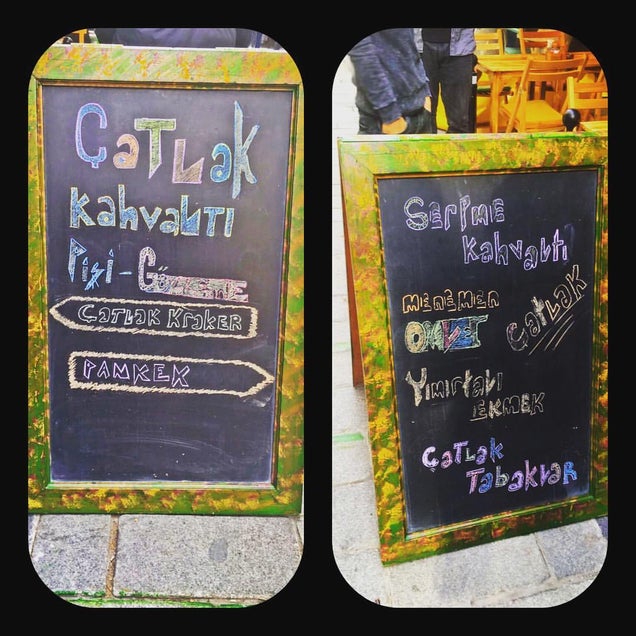 Çatlak
Kahvaltı
Pişi - Gözleme
Çatlak Kraker
Pankek
Serpme
Kahvaltı
Menemen
Omlet
Çatlak
Yımırtalı
Ekmek
Çatlak
Tabaklar